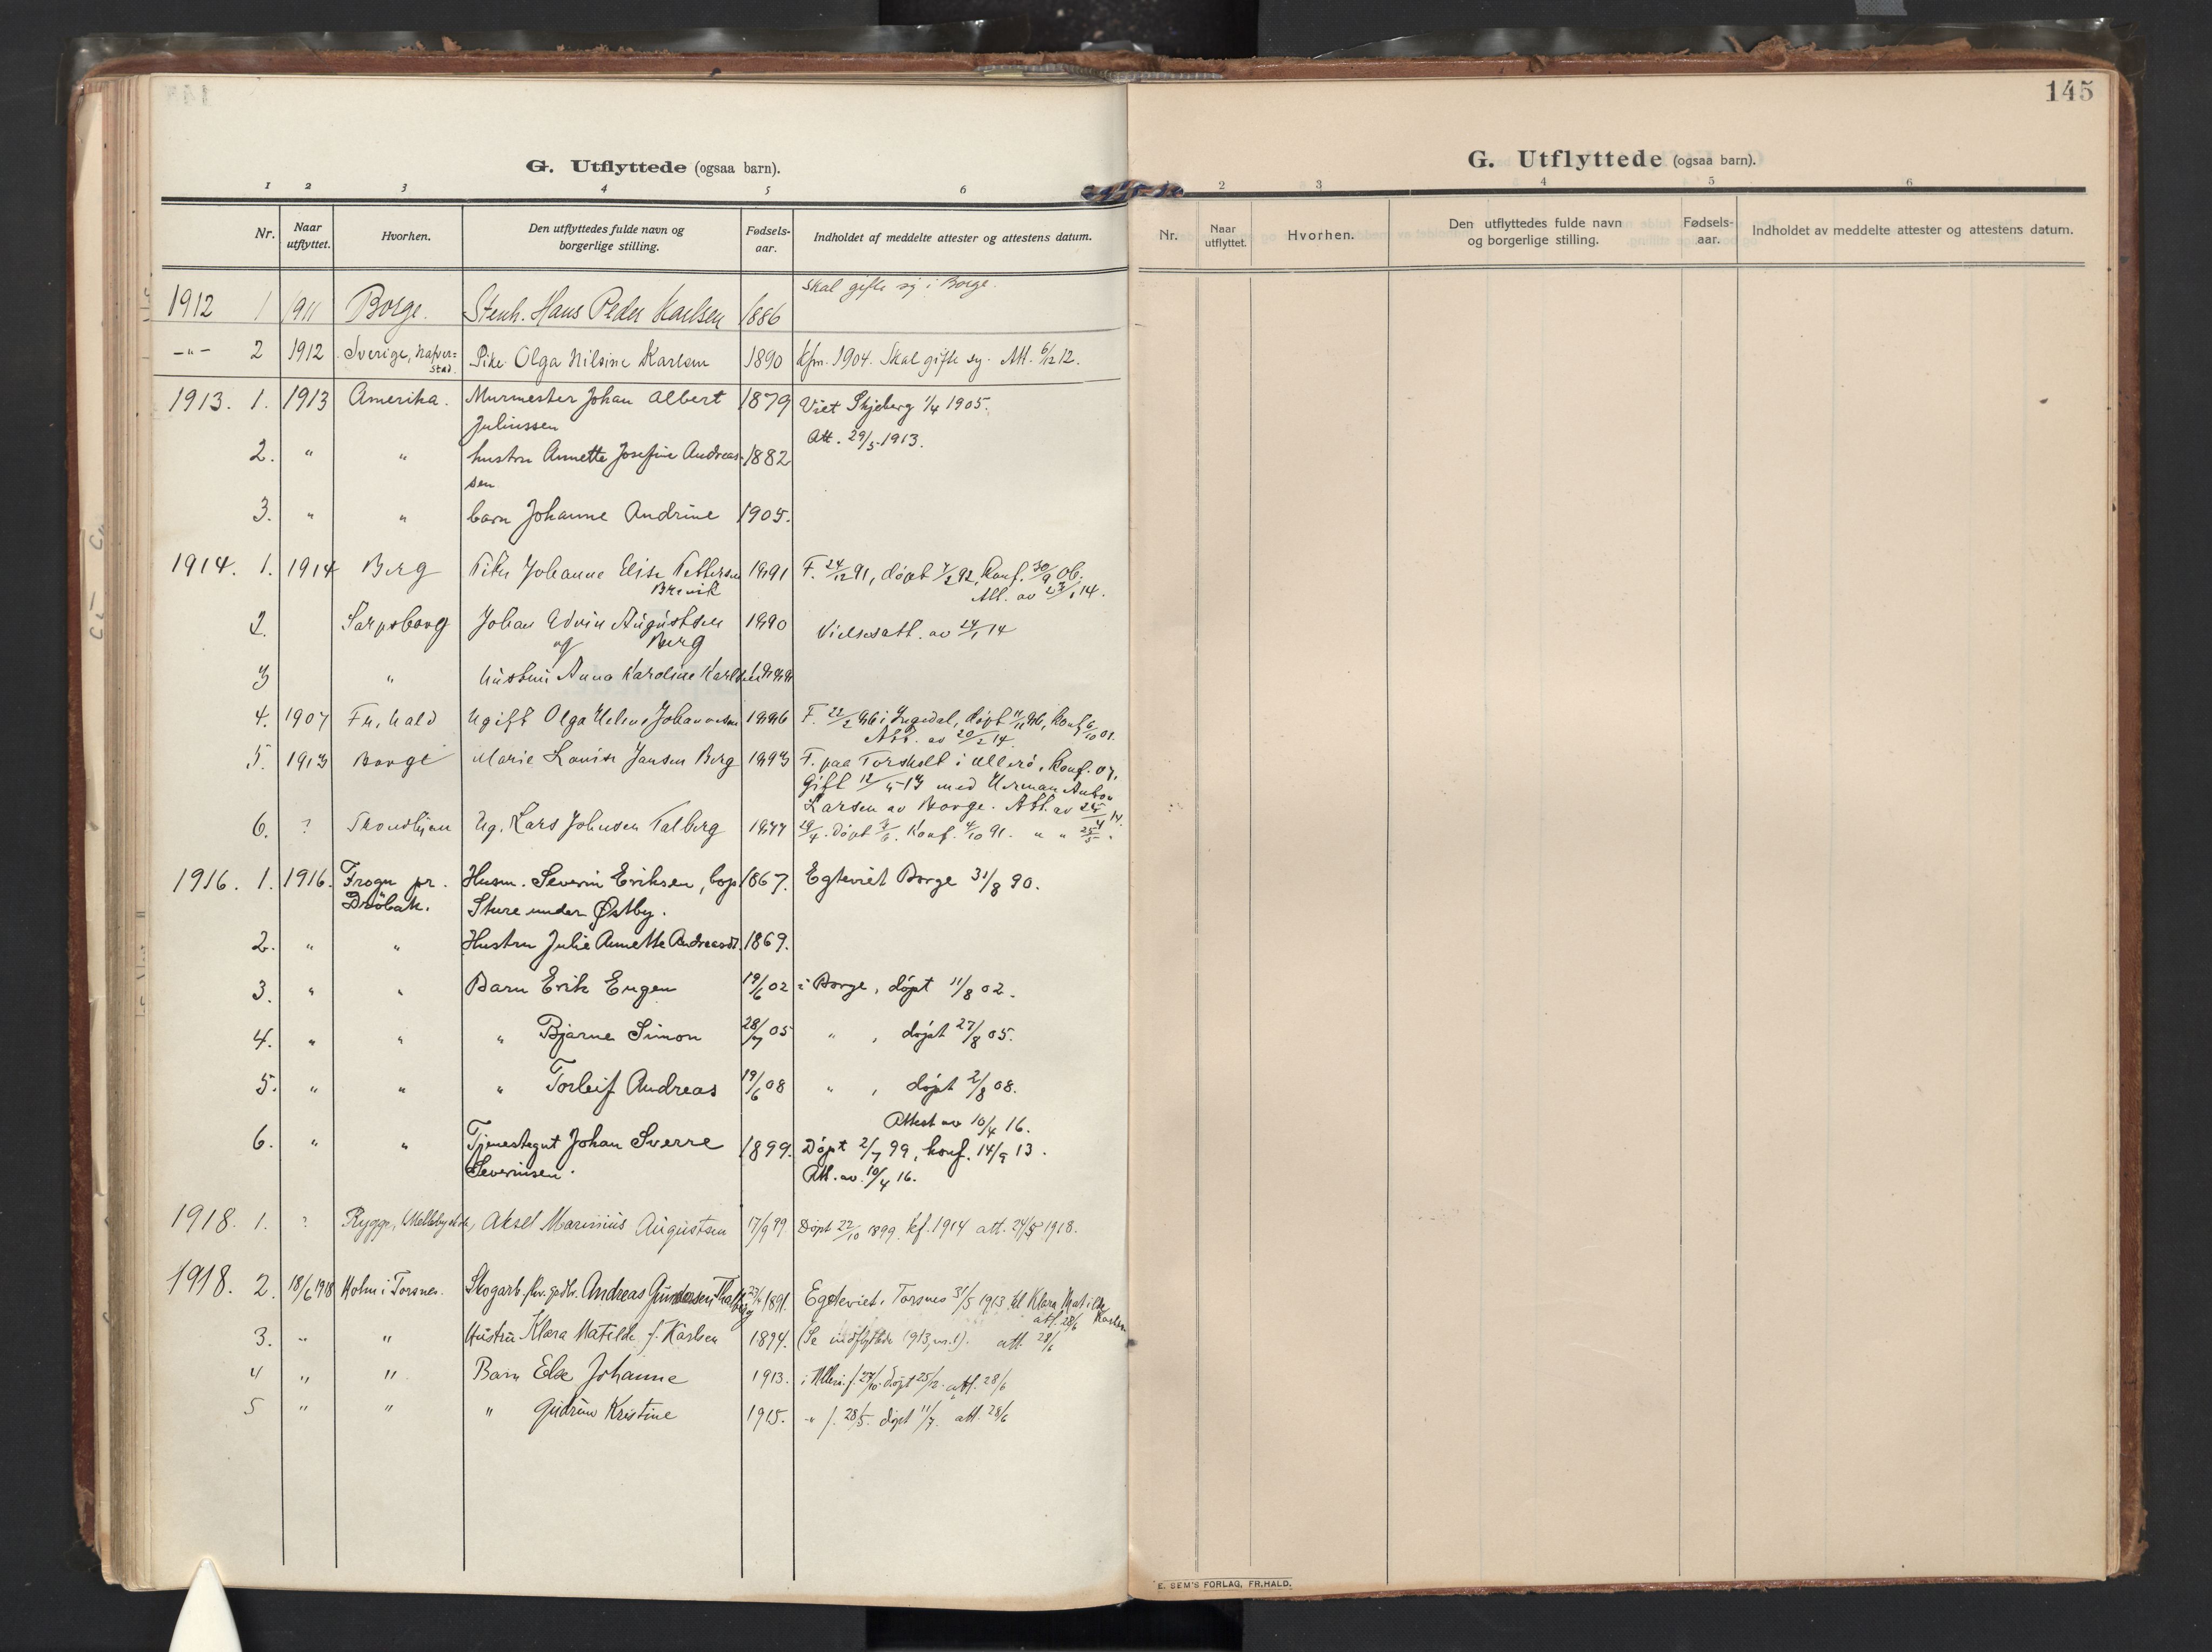 145
G. Utflyttede (ogsaa barn).
1 2 3 4 5 6
Nr. Naar utflyttet. Hvorhen. Den utflyttedes fulde navn og borgerlige stilling. Fødsels-aar. Indholdet af meddelte attester og attestens datum.
skal gifte sig i Borge.
1912 1 1911 Borge. Stenh. Hans Peder Karlsen 1886
-"- 2 1912 Sverige, Nafver=stad. Pike Olga Nilsine Karlsen 1890 Kfm. 1904. Skal gifte sig. Att. 6/12 12.
1913. 1. 1913 Amerika. Murmester Johan Albert 1879 Viet Skjeberg 1/4 1905.
Juliussen Att. 29/3 1913.
2. " " hustru Annette Josefine Andreas- 1882
sen
3. " " barn Johanne Andrine 1905.
1914. 1. 1914 Berg Johanne Elise Pettersen 1891 F. 24/12 91, døpt 7/2 92, Konf. 30/9 06.
Brevik Att. av 23/1 14.
2. Sarpsborg Johan Edvin Augustsen 1890 Vielsesatt. av 24/1 14
og Berg
3 " hustru Anna Karoline Karlsen
4. 1907 Fr.hald Ugift Olga Helene Johannesen 1886 F. 22/2 86 i Ingedal, døpt konf. 6/10 01.
Att. av 20/2 14.
5. 1913 Borge Marie Louise Jansen Berg 1893 F. paa Torskolt i Ullerö, Konf. 07,
Gift 12/ 13 med Herman Anton
Larsen av Borge. Att. av 24/4 14.
6. ? Trondhjem Ug. Lars Johnsen Talberg 1877 29/4. Døpt Konf. 4/10 91. " " 25/5.
1916. 1. 1916. Frogn pr. Husm. Severin Eriksen, bop. 1867. Egteviet Borge 31/8 90.
Dröbak. Sture under Østby.
2. " " Hustru Julie Annette Andreasdt. 1869.
3. " " Barn Erik Eugen 19/6 02 i Borge, döpt 11/8 02.
4. " " " Bjarne Simon 28/7 05 " , döpt 27/8 05.
5. " " " Torleif Andreas 19/6 08 " , döpt 2/8 08.
Attest av 10/4 16.
6. " " Tjenestegut Johan Sverre 1899. Döpt 2/7 99, konf. 14/9 13.
Severinsen. Att. av. 10/4 16.
1918. 1. ? Rygge, Aksel Marinius Augustsen 17/9 99. Döpt 22/10 1899. kf. 1914 att. 24/5 1918.
1918. 2. 18/6 1918 Holm i Torsnes. Skogarb. Andreas Gundersen Thalberg 1891. Egteviet i Torsnes 31/5 1913 til Klara Matilde
att. 28/6 Karlsen
3. " " Hustru Klara Matilde f. Karlsen 1894. (Se indflyttede 1913, nr. 1). att. 28/6
4 " " Barn Else Johanne 1913. i Ullerö f. 27/10. døpt 25/12. att. 28/6
5 " " " Gudrun Kristine 1915. " f. 28/5. døpt 11/7. att. 28/6
G. Utflyttede (ogsaa barn).
2 3 4 5 6
Nr. Naar utflyttet. Hvorhen. Den utflyttedes fulde navn og borgerlige stilling. Fødsels-aar. Indholdet av meddelte attester og attestens datum.
E. SEM'S FORLAG, FR.HALD.